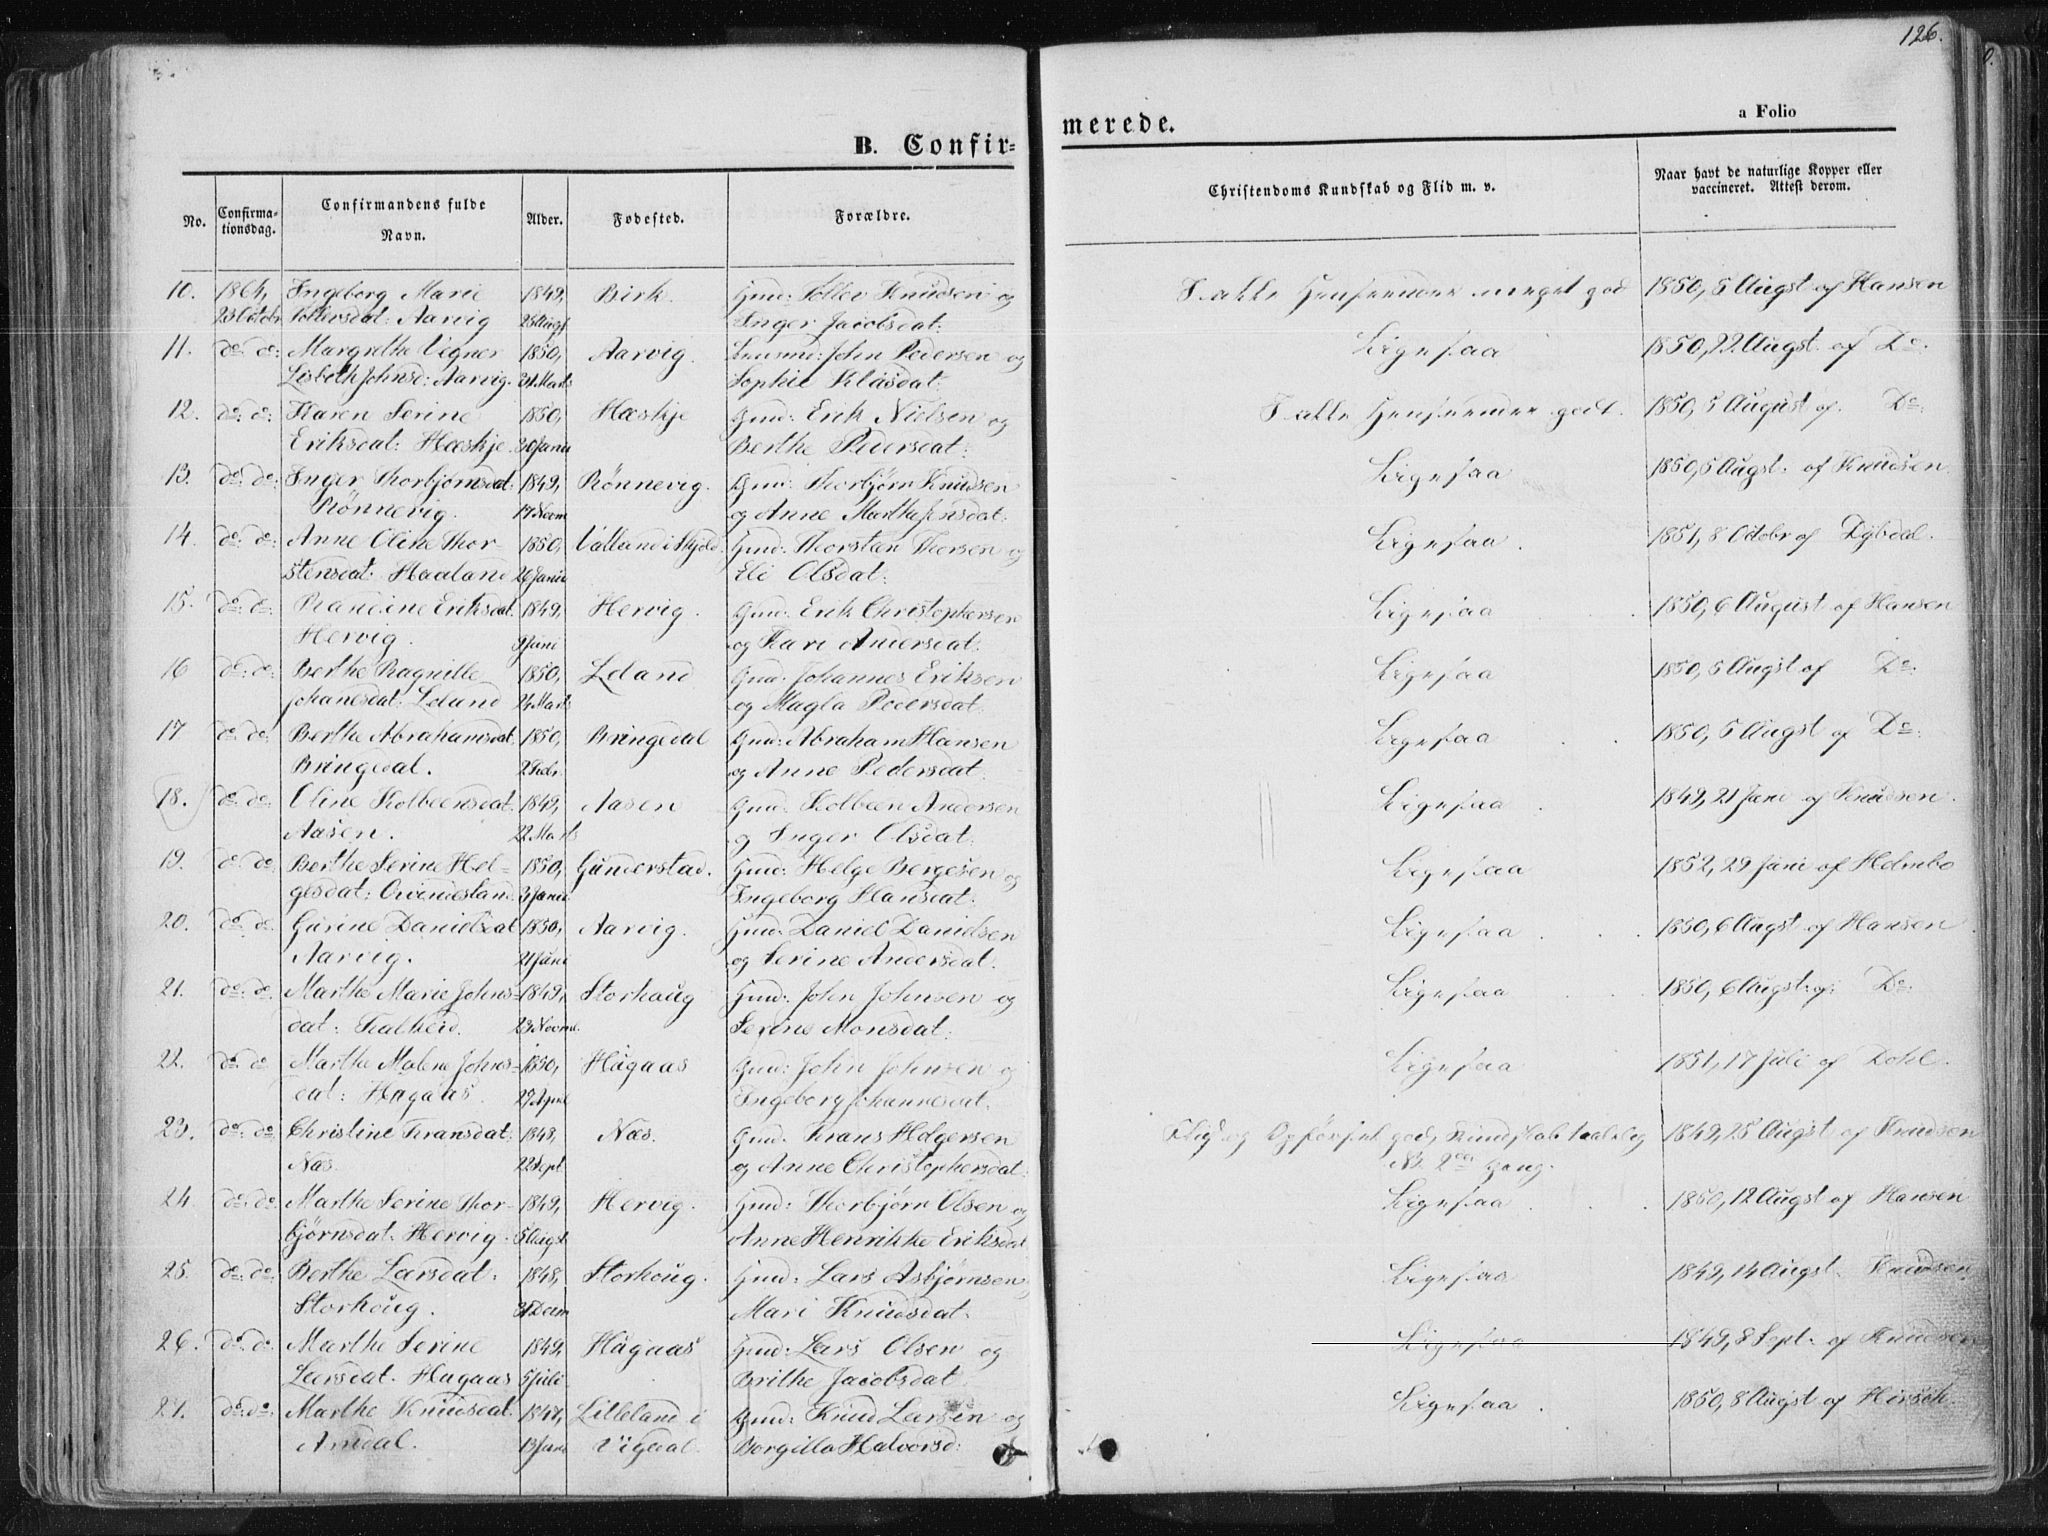 126.
B. Confir=
merede.
a Folio
No.
Confirma-
tionsdag.
Confirmandens fulde
Navn.
Alder.
Fødested.
Forældre.
Christendoms Kundskab og Flid m. v.
Naar havt de naturlige Kopper eller
vaccineret. Attest derom.
10. 1864, Ingeborg Marie 1849, Birk. Gmd: Tollev Knudsen og meget god 1850, 5 Augst af Hansen
23 Octobr Tollevsdat: Aarvig 25 Augst Inger Jacobsdat:
11. do: do: Margrethe Vegner 1850, Aarvig. John Pedersen og Ligesaa 1850, 22 Augst. af Do.
Lisbeth Johnsd: Aarvig. 31 Marts Sophie Klasdat:
12. do: do: Karen Serine 1850, Hæskje Gmd: Erik Nielsen og I alle Henseender godt. 1850, 5 August af Do:
Eriksdat: Hæskje. 30 Janu Berthe Pedersdat:
13. do: do: Inger Thorbjørnsdat: 1849, Rönnevig. Gmd: Thorbjörn Knudsen Ligesaa 1850, 5 Augst: af Knudsen
Rönnevig. 17 Novm og Anne Marthe Jensdat:
14. do: do: Anne Oline Thor- 1850, Valland i Skjold. Gmd: Thorstan Thorsen og Ligesaa. 1851, 8 Octobr af Dybdal.
stensdat: Haaland 26 Janu Eli Olsdat:
15. do: do: Randine Eriksdat. 1849, Hervig. Gmd: Erik Christophersen Ligesaa 1850, 6 August af Hansen
Hervig. 9 Juni og Kari Andersdat:
16 do: do: Berthe Ragnille 1850, Leland Gmd: Johannes Eriksen Ligesaa 1850, 5 Augst af Do:
Johanesdat: Leland 24 Marts og Magla Pedersdat.
17 do: do: Berthe Abrahamsdat. 1850, Bringedal Gmd: Abraham Hansen Ligesaa 1850, 5 Augst af Do:
Bringedal. 2 Febr. og Anne Pedersdat:
18. do: do: Oline Kolbeensdat. 1849, Aasen Gmd: Kolbeen Andersen Ligesaa. 1849, 21 Juni af Knudsen.
Aasen. 22 Marts og Inger Olsdat:
19. do do: Berthe Serine Hel- 1850, Gunderstad. Gmd: Helge Bergesen og Ligesaa 1852, 29 Juni af Holmbo
gesdat: Qvindesland. 3 Janu Ingeborg Hansdat:
20. do do. Gurine Danielsdat 1850, Aarvig. Gmd: Daniel Danielsen Ligesaa. 1850, 6 Augst af Hansen
Aarvig. 21 Juni og Serine Andersdat.
21. do: do: Marthe Marie Johns- 1849, Storhoug Gmd: John Johnsen og Ligesaa 1850, 6 Augst: af Do:
dat: Kalheid. 29 Novm. Serine Monsdat:
22. do: do Marthe Malene Johns- 1850, Hagaas Gmd: John Johnsen og Ligesaa 1851, 17 Juli af Dohl.
dat: Hagaas. 29 April Ingeborg Johannesdat.
23. do: do: Christine Transdat: 1848, Næs. Gmd. Trans Holgersen Flid og Opförsel god, Kundskab taalelig 1849, 25 Augst af Knudsen
Næs. 22 Sept og Anne Christophersdat: NB. 2den Gang.
24. do: do: Marthe Serine Thor- 1849, Hervig. Gmd: Thorbjörn Olsen og Ligesaa. 1850, 12 Augst af Hansen
björnsdat. Hervig. 5 Augst Anne Henrikke Eriksdat
25. do: do: Berthe Larsdat: 1848, Storhoug. Gmd: Lars Asbjørnsen, Ligesaa 1849, 14 Augst. Knudsen
Storhoug. 31 Decm Mari Knudsdat:
26. do: do: Marthe Serine 1849, Hagaas Gmd: Lars Olsen og Ligesaa 1849, 8 Sept: af Knudsen
Larsdat. Hagaas 5 Juli. Brithe Jacobsdat.
27. do: do: Marthe Knudsdat. Lilleland i Gmd: Knud Larsen og Ligesaa. 1850, 8 Augst af Hirsch.
Amdal. 13 Juni Vigdal. Borgilla Halvorsd: